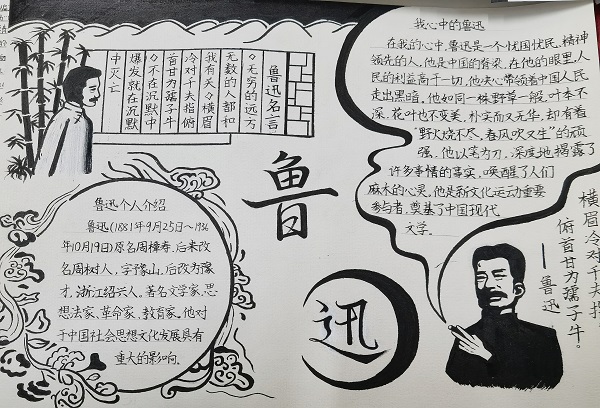 鲁迅名言
◇无穷的远方
无数的人都和
我有关◇横眉
冷对千夫指俯
首甘为孺子牛
◇不在沉默中
爆发就在沉默
中灭亡
我心中的鲁迅
在我的心中,鲁迅是一个忧国忧民,精神
领先的人,他是中国的脊梁,在他的眼里,人
民的利益高于一切,他决心带领着中国人民
走出黑暗,他如同一株野草一般,叶本不
深,花叶也不变美,朴实而又无华,却有着
"野火烧不尽,春风吹又生"的顽
强,他以笔为刀,深度地揭露了
许多事情的事实,唤醒了人们
麻木的心灵,他是新文化运动重要
参与者,奠基了中国现代
文学。
鲁迅
鲁迅个人介绍
鲁迅(1881年9月25日~1936
年10月19日)原名周樟寿,后来改
名周树人,字豫山,后改为豫
才,浙江绍兴人。著名文学家、思
想法家、革命家、教育家。他对
于中国社会思想文化发展具有
重大的影响。
横眉冷对千夫指
俯首甘为孺子牛。
——鲁迅